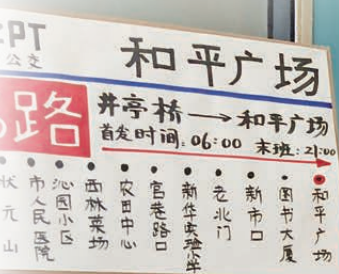 PT
公交
和平广场
路
井亭桥→和平广场
首发时间:06:00 末班:21:00
状元山
市人民医院
沁园小区
西林菜场
农田中心
宫巷路口
新华实验小学
老北门
新市口
图书大厦
和平广场